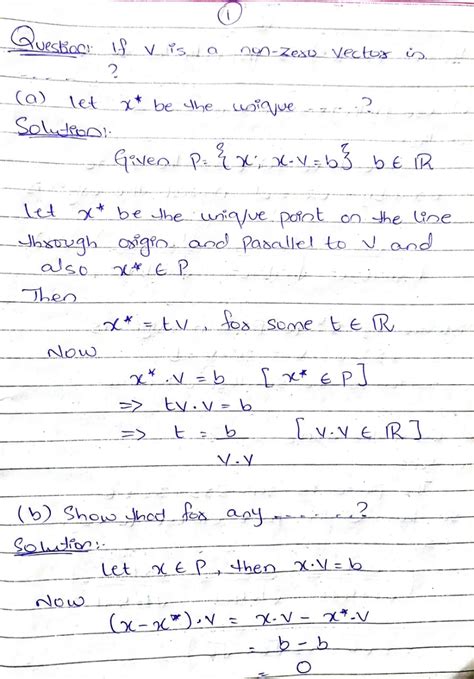 1
Question: If v is a non-zero vector in
..... ?
(a) let x* be the unique .....?
Solution:-
Given P = { x; x.v = b } b ∈ ℝ
Let x* be the unique point on the line
through origin and parallel to v and
also x* ∈ P
Then
x* = tv, for some t ∈ ℝ
Now
x*.v = b [x* ∈ P]
=> tv.v = b
=> t = b/v.v [v.v ∈ ℝ]
(b) Show that for any ......?
Solution:-
Let x ∈ P, then x.v = b
Now
(x-x*).v = x.v - x*.v
= b - b
= 0